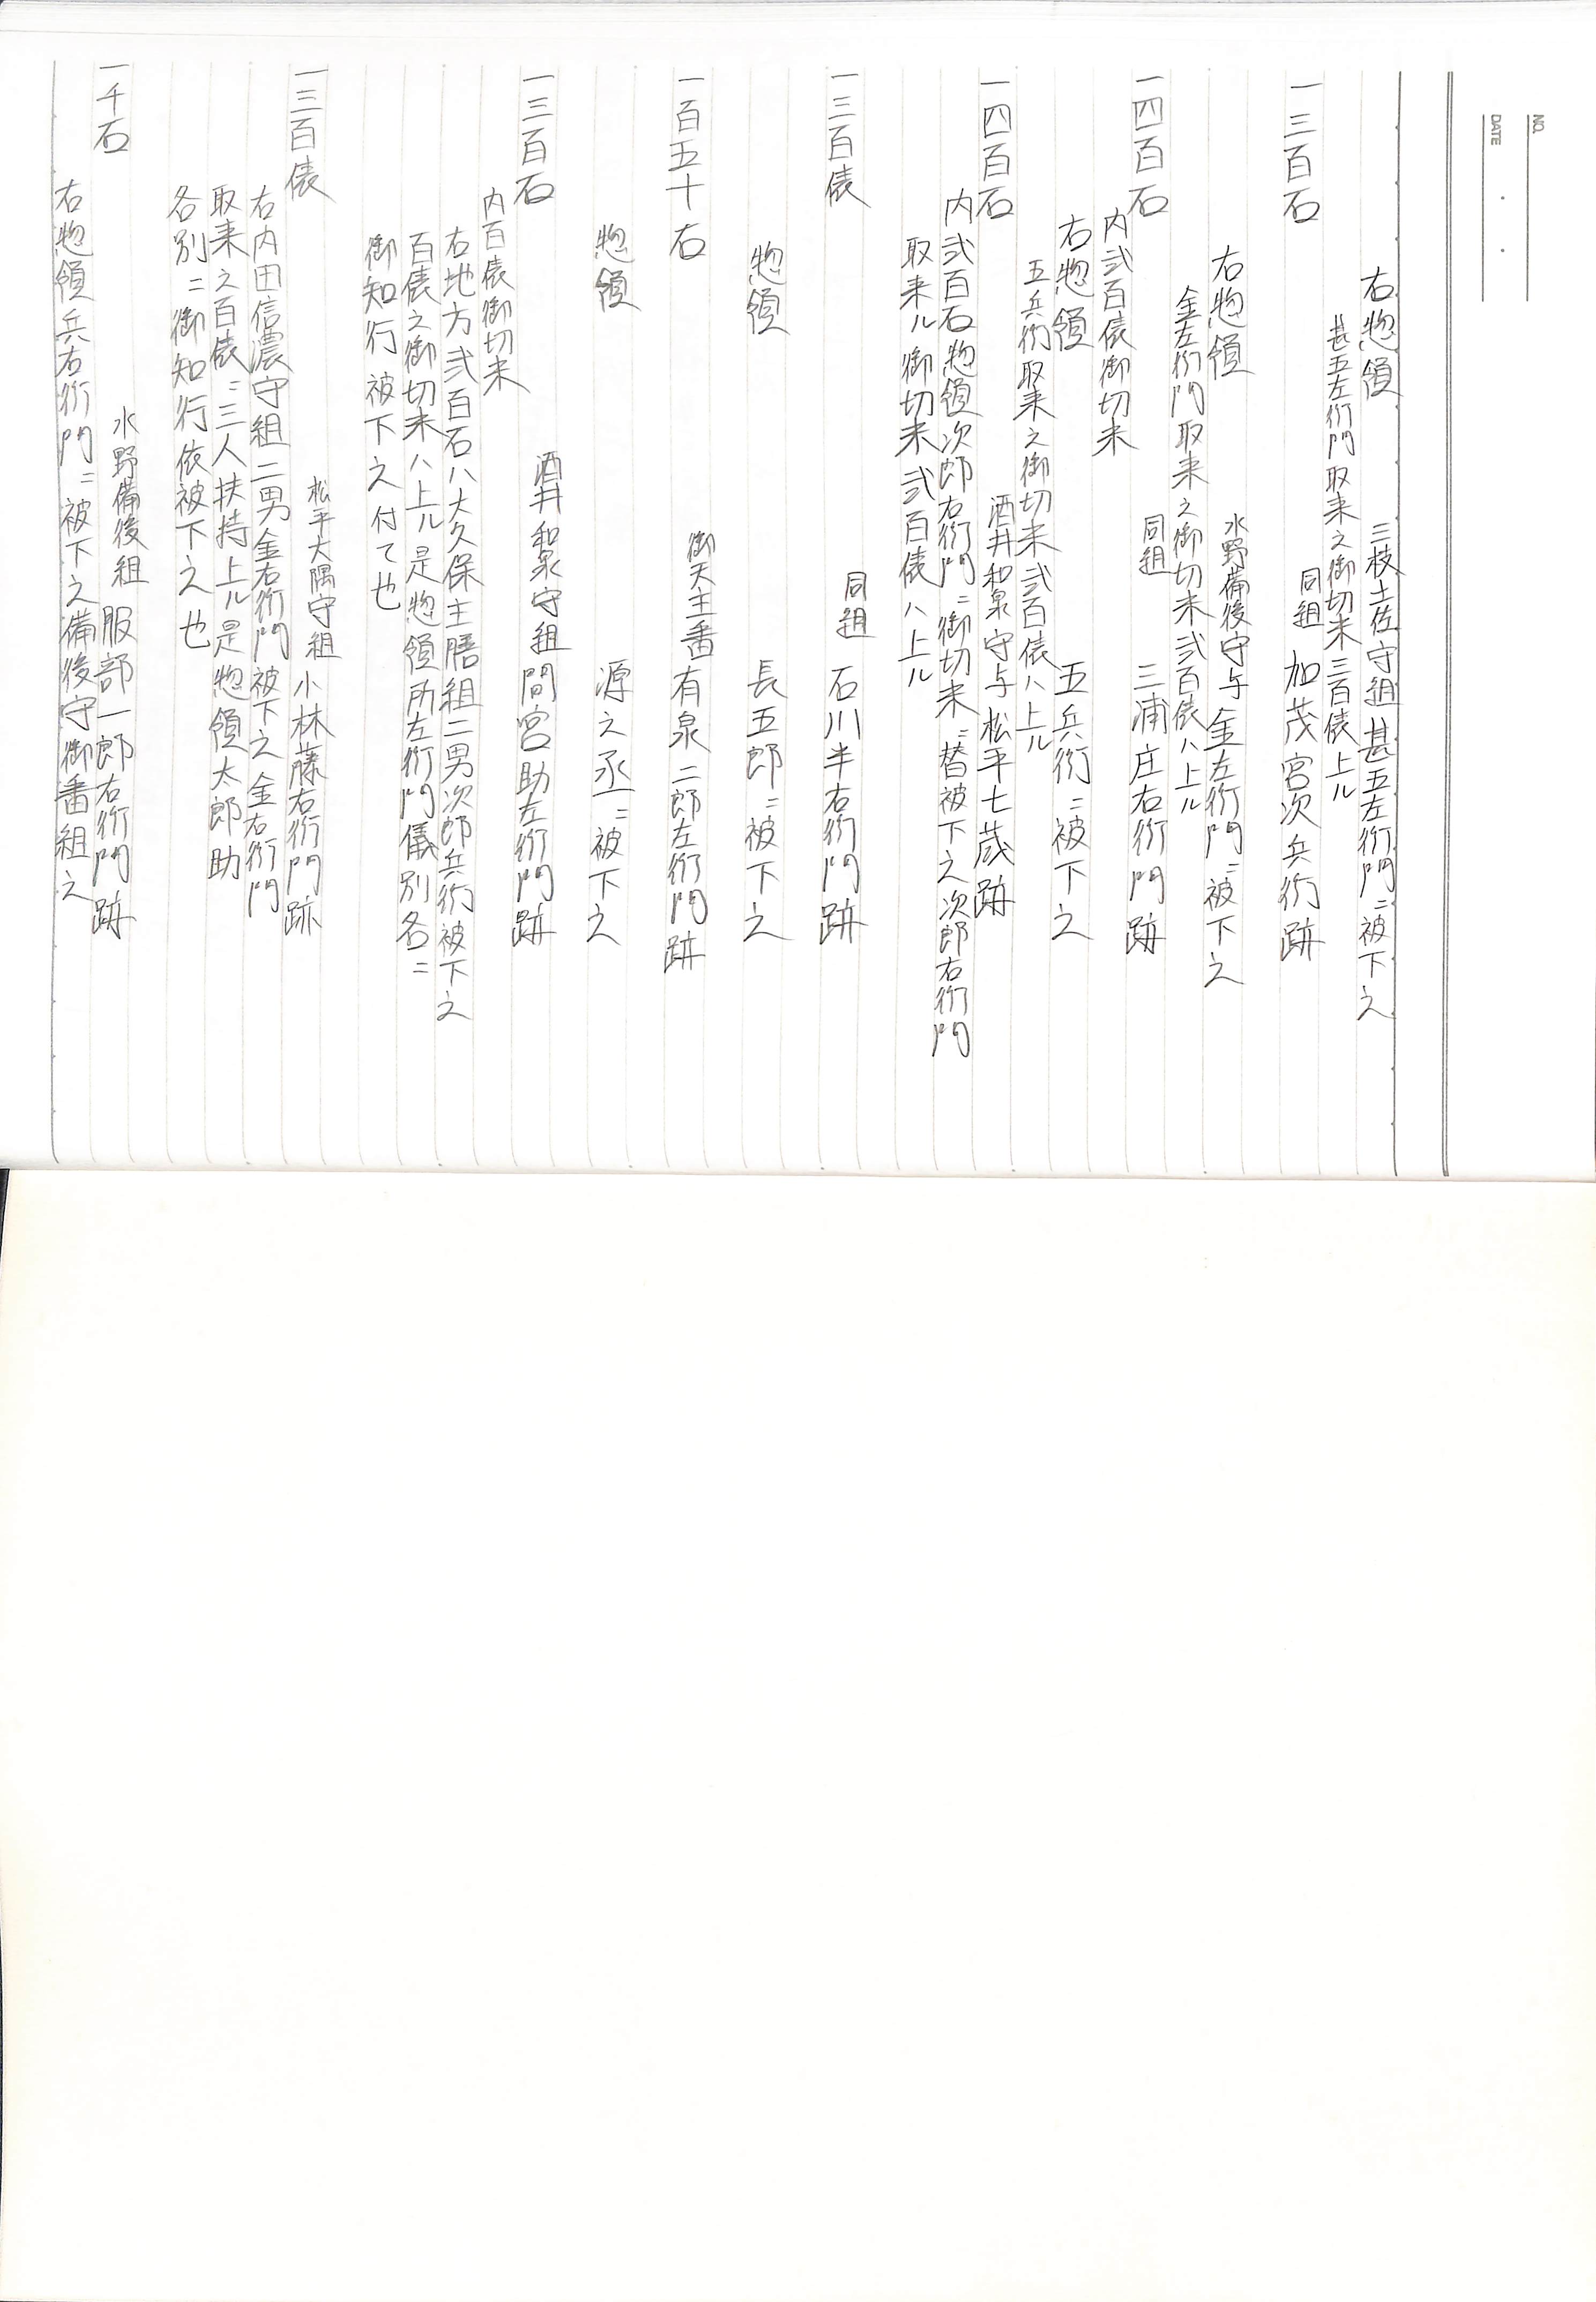 NO.
DATE
右惣領　三枝土佐守組 甚五左衛門ニ被下之
甚五左衛門取来之御切米三百俵上ル
一三百石　同組 加茂宮次兵衛跡
右惣領　水野備後守与 金左衛門ニ被下之
金左衛門取来之御切米弐百俵ハ上ル
一四百石　同組 三浦庄右衛門跡
内弐百俵御切米
右惣領　五兵衛ニ被下之
五兵衛取来之御切米弐百俵ハ上ル
一四百石　酒井和泉守与 松平七蔵跡
内弐百石惣領次郎右衛門ニ御切米ニ替被下之次郎右衛門
取来ル御切米弐百俵ハ上ル
一三百俵　同組 石川半右衛門跡
惣領　長五郎ニ被下之
一百五十石　御天主番 有泉二郎左衛門跡
惣領　源之丞ニ被下之
一三百石　酒井和泉守組 間宮助左衛門跡
内百俵御切米
右地方弐百石ハ大久保主膳組二男次郎兵衛被下之
百俵之御切米ハ上ル是惣領所左衛門儀別各ニ
御知行被下之付て也
一三百俵　松平大隅守組 小林藤右衛門跡
右内田信濃守組二男金右衛門被下之金右衛門
取来之百俵ニ三人扶持上ル是惣領太郎助
各別ニ御知行依被下之也
一千石　水野備後組 服部一郎右衛門跡
右惣領兵右衛門ニ被下之備後守御番組之